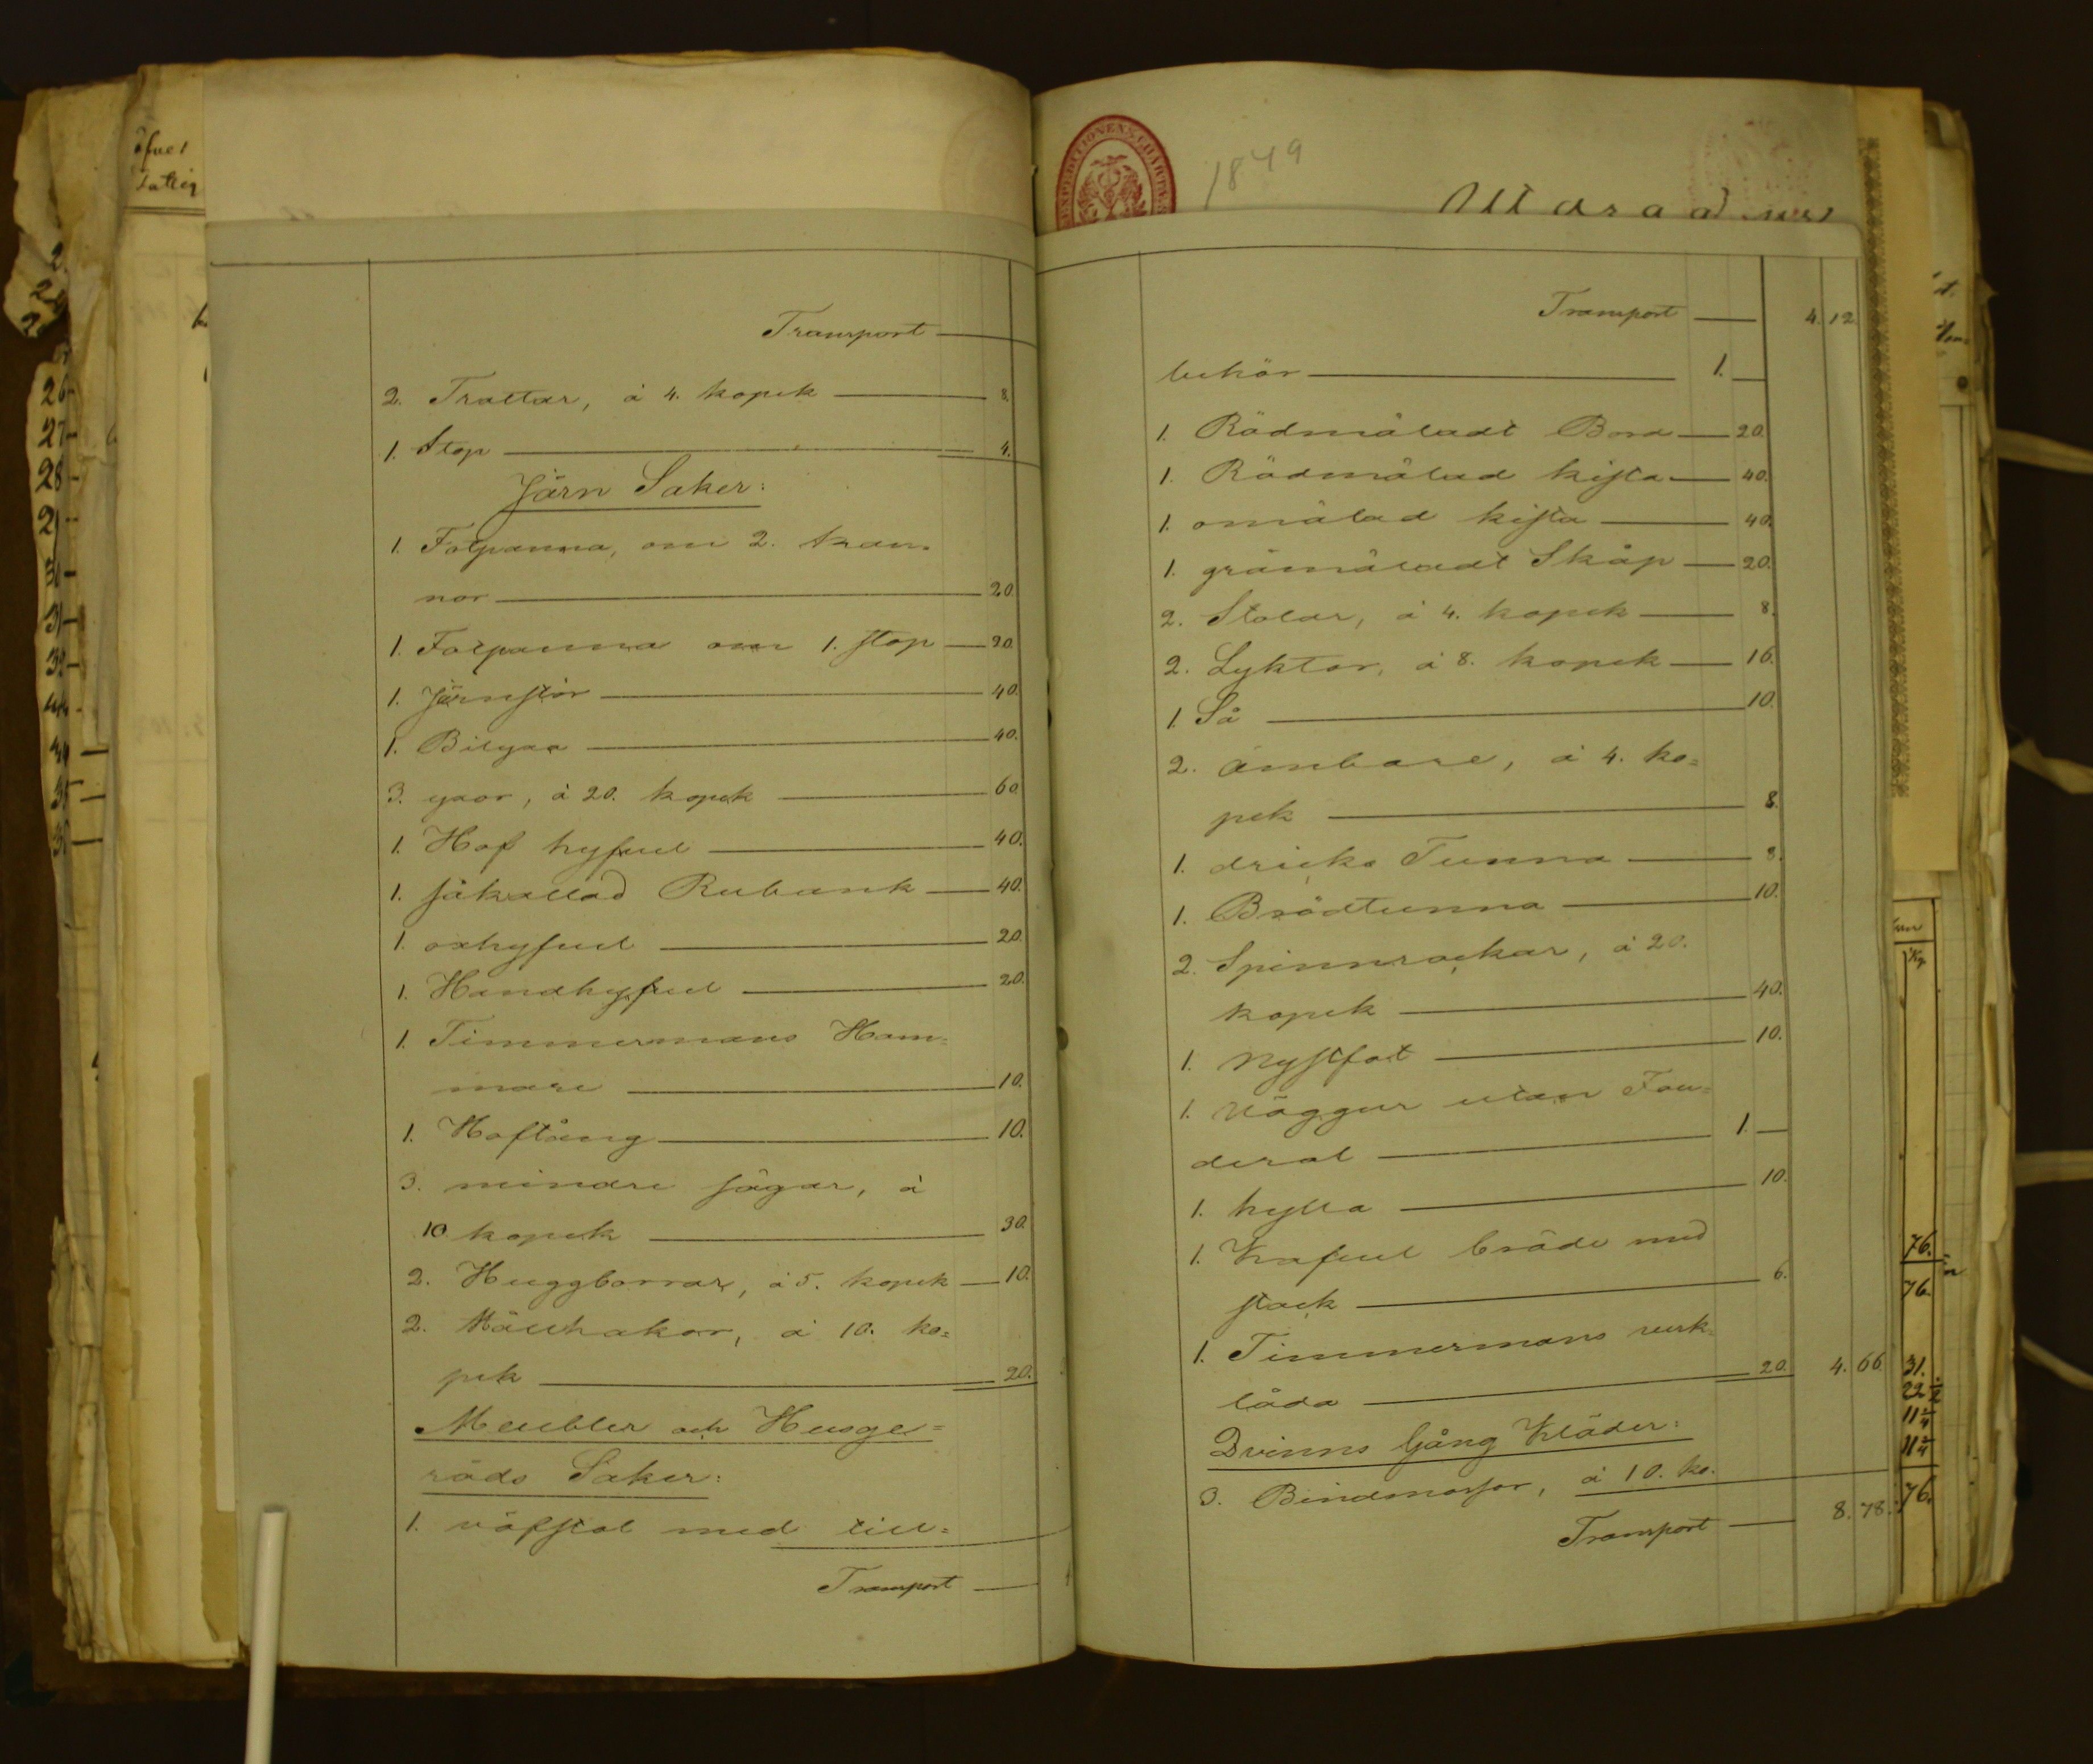 Transport
2. Trattar, à 4. kopek 8.
1. Stop 4.
Järn Saker:
1. Fotpanna, om 2. kan-
nor 20.
1. Fotpanna om 1. stop 20.
1. Järnstör 40.
1. Bilyxa 40.
3. yxor, à 20. kopek 60.
1. Hof hyfvel 40.
1. såkallad Rubank 40.
1. oxhyfvel 20.
1. Handhyfvel 20.
1. Timmermans Ham=
mare 10.
1. Hoftång 10.
3. mindre sågar, à
10 kopek 30.
2. Huggborrar, à 5. kopek 10.
2. Hällhakar, à 10. ko=
pek 20.
Meubler och Husge=
råds Saker:
1. väfstol med till=
Transport
1849
Transport 4. 12.
behör 1.
1. Rödmåladt Bord 20.
1. Rödmålad kista 40.
1. omålad kista 40.
1. gråmåladt Skåp 20.
2. Stolar, à 4. kopek 8.
2. Lyktor, à 8. kopek 16.
1. Så 10.
2. ämbare, à 4. ko=
pek 8.
1. dricks Tunna 8.
1. Brödtunna 10.
2. Spinnrockar, à 20.
kopek 40.
1. nystfot 10.
1. väggur utan Fou=
deral 1.
1. hylla 10.
1. Kafvel bräde med
stock 6.
1. Timmermans verk-
låda 20. 4. 66.
Qvinns Gång Kläder:
3. Bindmössor, à 10. ko.
Transport 8. 78.